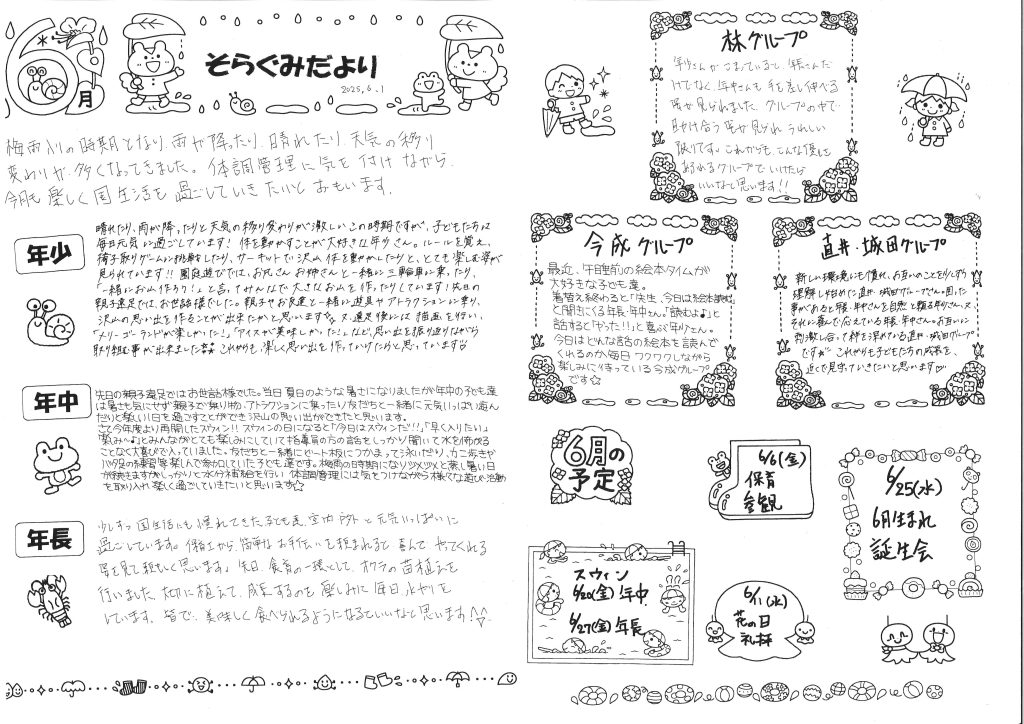 6月
そらぐみだより
2025.6.1
梅雨入りの時期となり、雨が降ったり、晴れたり、天気の移り
変わりが多くなってきました。体調管理に気を付けながら、
今月も楽しく園生活を過ごしていきたいとおもいます。
年少
晴れたり、雨が降ったりと天気の移り変わりが激しいこの時期ですが、子どもたちは
毎日元気に過ごしています！体を動かすことが大好きな年少さん。ルールを覚え、
椅子取りゲームに挑戦したり、サーキットで沢山体を動かしたりと、とても楽しむ姿が
見られています!!園庭遊びでは、お兄さんお姉さんと一緒に三輪車に乗ったり、
「一緒にお山作ろう！」と言ってみんなで大きなお山を作ったりしています！先日の
親子遠足では、お世話様でした。親子やお友達と一緒に遊具やアトラクションに乗り、
沢山の思い出を作ることが出来たかと思います☆又、遠足後には描画を行い、
「メリーゴーランドが楽しかった！」「アイスが美味しかった！」など、思い出を振り返りながら
取り組む事が出来ました。これからも、楽しい思い出を作っていけたらと思っています
年中
先日の親子遠足ではお世話様でした。当日夏日のような暑さになりましたが年中の子ども達
は暑さも気にせず親子で乗り物、アトラクションに乗ったり友だちと一緒に元気いっぱい遊ん
だりと楽しい1日を過ごすことができ沢山の思い出ができたと思います。
さて今年度より再開したスウィン!!スウィンの日になると「今日はスウィンだ!!」「早く入りたい」
「楽しみ～♪」とみんながとても楽しみにしていて指導員の方の話をしっかり聞いて水を怖がる
ことなく大喜びで入っていました。友だちと一緒にビート板につかまって泳いだり、カニ歩きや
バタ足の練習等楽しんで参加していた子ども達です。梅雨の時期になりジメジメと蒸し暑い日
が続きますがしっかりと水分補給を行い体調管理には気をつけながら様々な遊び・活動
を取り入れ楽しく過ごしていきたいと思います☆
年長
少しずつ園生活にも慣れてきた子ども達、室内、戸外と元気いっぱいに
過ごしています。保育士から、簡単なお手伝いを頼まれると喜んでやってくれる
姿を見て頼もしく思います♪先日、食育の一環として、オクラの苗植えを
行いました。大切に植えて、成長するのを楽しみに毎日水やりを
しています。皆で、美味しく食べられるようになるといいなと思います！
林グループ
年少さんがこまっていると、年長さんだ
けでなく、年中さんも手を差し伸べる
姿が見られました。グループの中で
助け合う姿が見られ、うれしい
限りです。これからも、こんな優しさ
あふれるグループでいけたら
いいなと思います!!
今成グループ
最近、午睡前の絵本タイムが
大好きな子ども達。
着替え終わると「先生、今日は絵本読む？」
と聞きにくる年長・年中さん。「読むよ♪」と
話すると「やった!!」と喜ぶ年少さん。
今日はどんな話の絵本を読んで
くれるのか毎日ワクワクしながら
楽しみに待っている今成グループ
です☆
直井・城田グループ
新しい環境にも慣れ、お互いのことを少しずつ
理解し始めた直井・城田グループさん。困った
事があると年長・年中さんを自然と頼る年少さん。又、
それに喜んで応えている年長・年中さん。お互いに
刺激し合って絆を深めている直井・城田グループ
ですが これからも子どもたちの成長を、
近くで見守っていきたいと思います
6月の
予定
6/6(金)
保育
参観
6/25(水)
6月生まれ
誕生会
スウィン
6/20(金)年中
6/27(金)年長
6/11(水)
花の日
礼拝